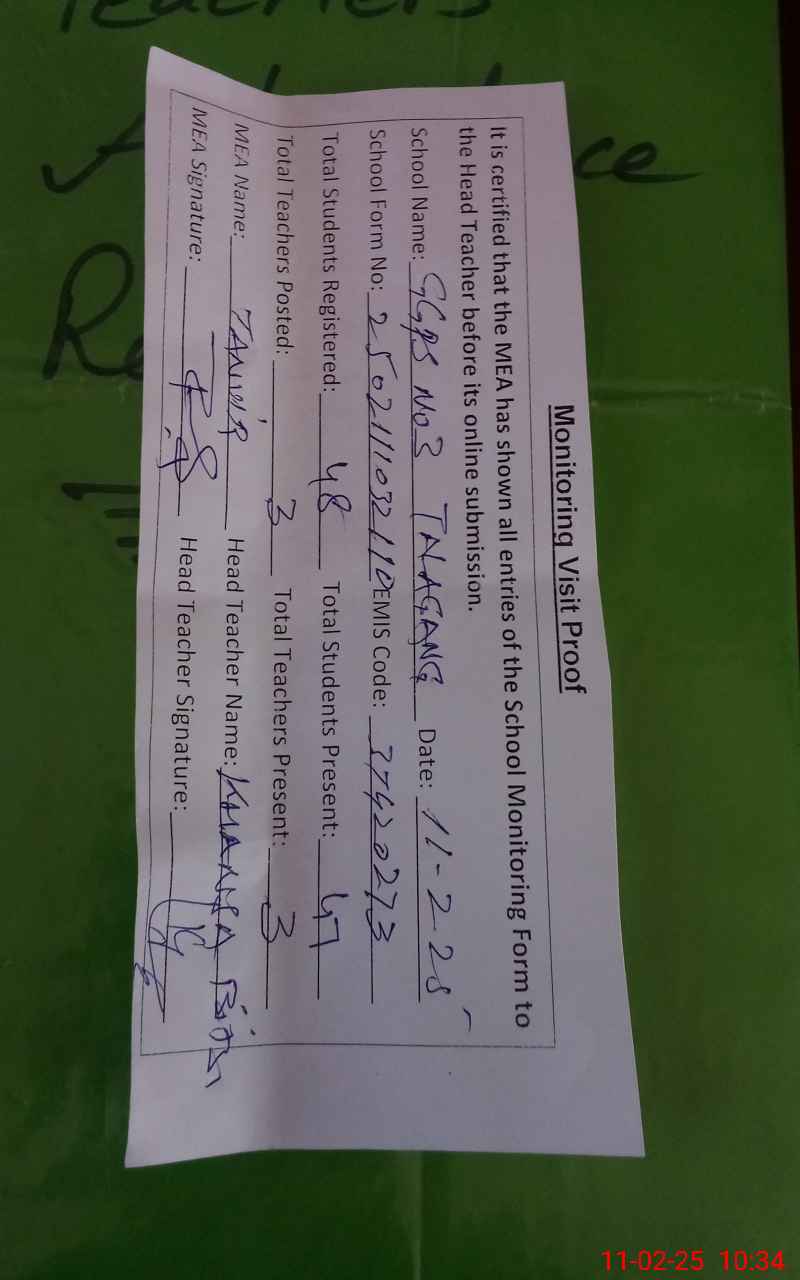 Teachers
Monitoring Visit Proof
It is certified that the MEA has shown all entries of the School Monitoring Form to
the Head Teacher before its online submission.
School Name: GGPS No3 TALAGANG Date: 11-2-25
School Form No: EMIS Code: 37420273
Total Students Registered: 48 Total Students Present: 47
Total Teachers Posted: 3 Total Teachers Present: 3
MEA Name: TANVIR Head Teacher Name: KHANSA
MEA Signature: Head Teacher Signature:
11-02-25 10:34